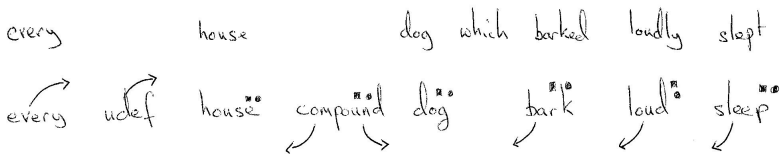 every house dog which barked loudly slept
every udef house compound dog bark loud sleep